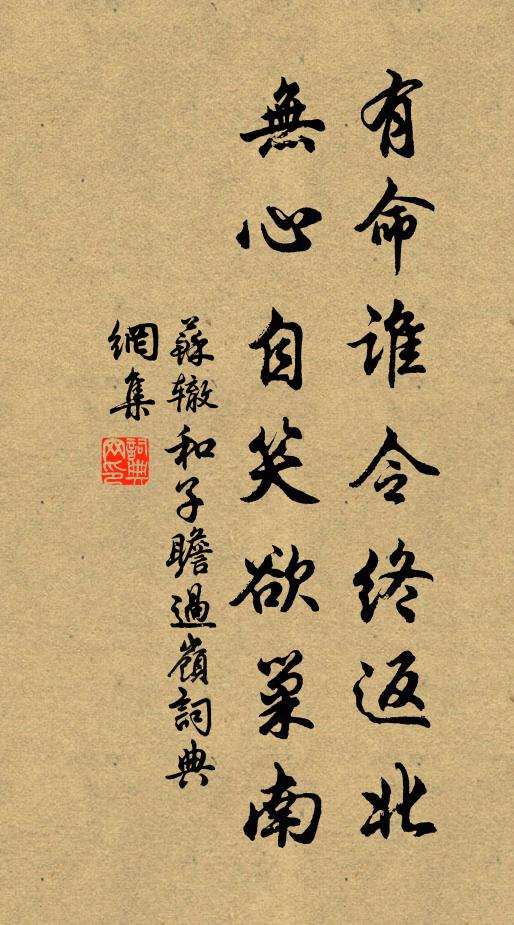 有命誰令終返北
無心自笑欲巢南
蘇辙和子瞻過嶺詞典
網集
詞典
网印